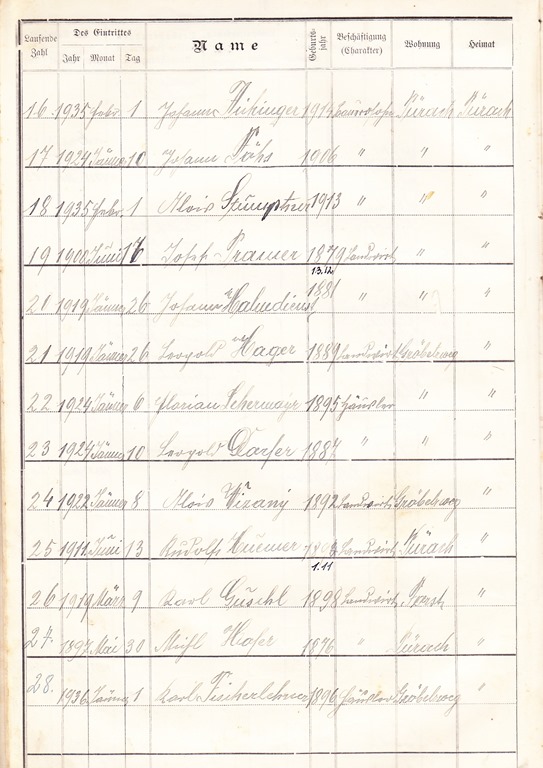 Laufende Zahl Des Eintrittes Name Geburtsjahr Beschäftigung (Charakter) Wohnung Heimat
Jahr Monat Tag
16 1935 Febr. 1 Johann 1914 Pürach Pürach
17 1924 Jänner 10 Johann 1906 " " "
18 1935 Febr. 1 Alois 1913 " " "
19 1900 Juni 17 Josef Pramer 1879 Landwirt " "
13.12.
20 1919 Jänner 26 Johann 1881 " " "
21 1919 Jänner 26 Leopold Hager 1889 Landwirt Gröbelweg "
22 1924 Jänner 6 Florian 1895 Häusler " "
23 1924 Jänner 10 Leopold 1887 " " "
24 1922 Jänner 8 Alois 1892 Landwirt Gröbelweg "
25 1911 Juni 13 Rudolf Landwirt Pürach "
1.11
26 1919 März 9 Karl 1898 Landwirt "
27. 1897 Mai 30 Hofer 1876 " Pürach "
28. 1936 Jänner 1 Karl Fischerlehner 1896 Häusler Gröbelweg "